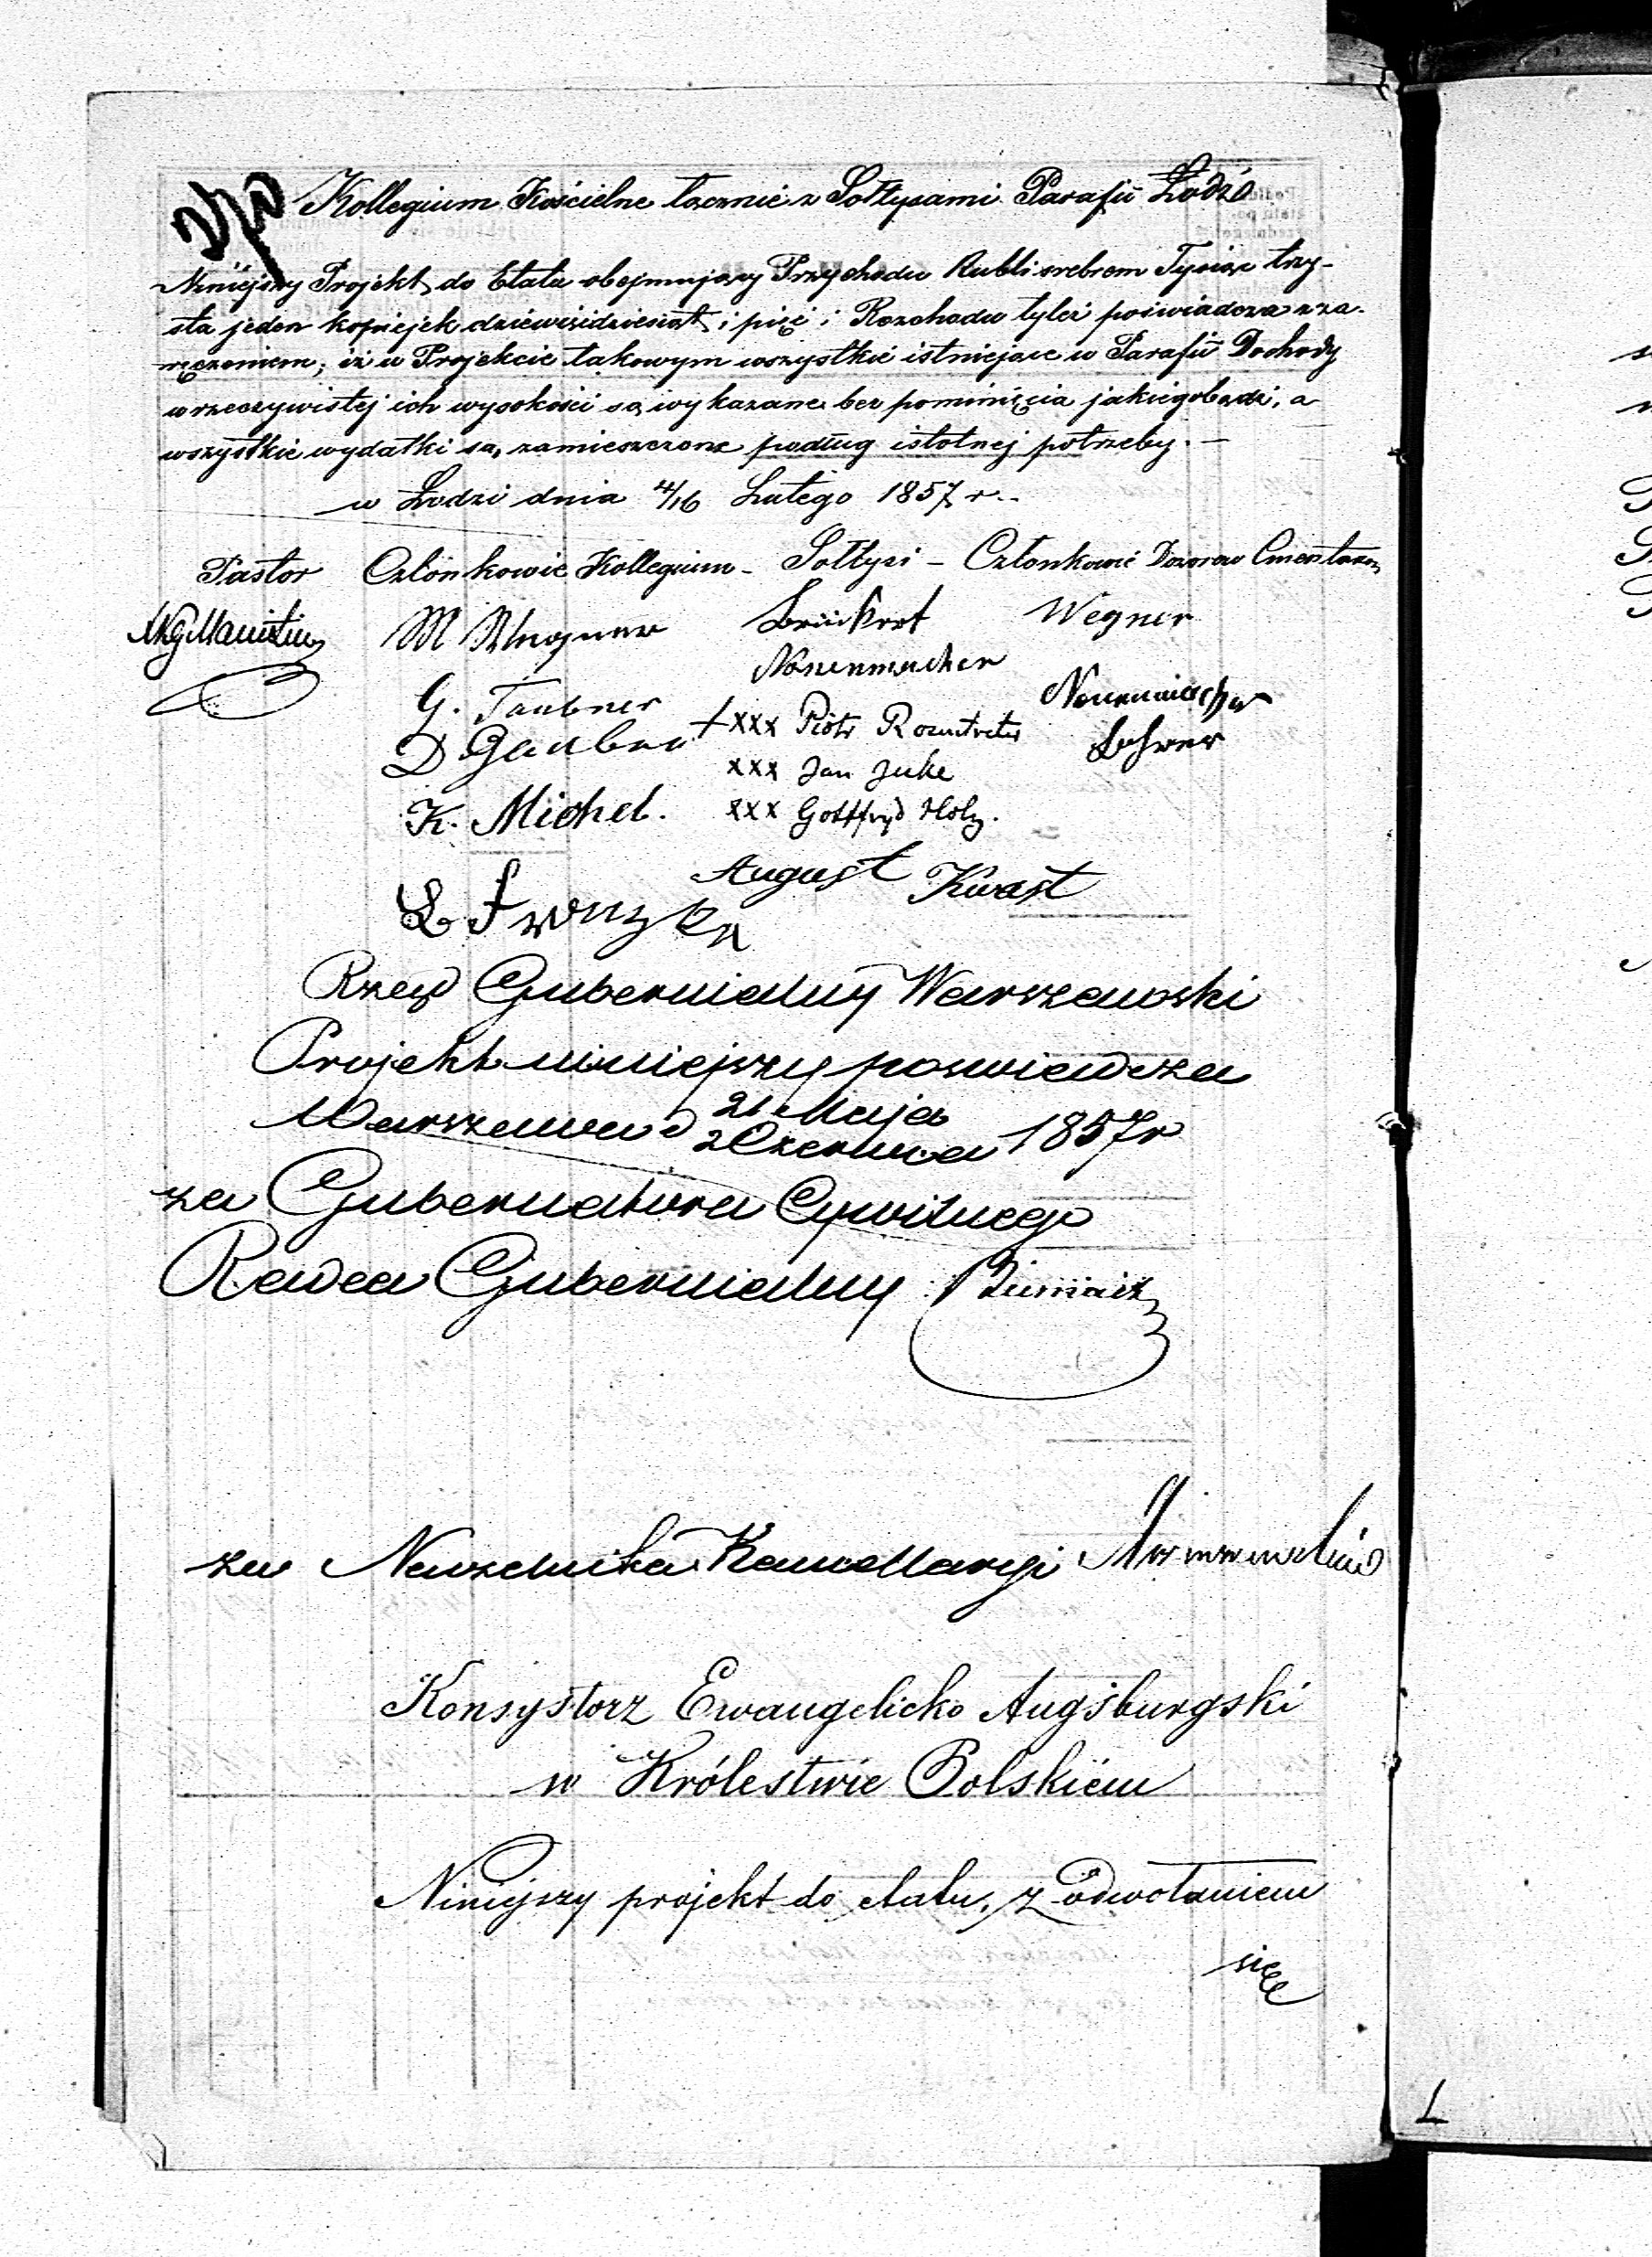 Kollegium Kościelne łącznie z Sołtysami Parafii Łodzi
Niniejszy Projekt do Etatu obejmujący Przychodu Rubli srebrem Tysiąc trzy-
sta jeden kopiejek dziewięćdziesiąt i pięć i Rozchodu tyleż poświadcza z za-
ręczeniem, iż w Projekcie takowym wszystkie istniejące w Parafii Dochody
w rzeczywistej ich wysokości są wykazane bez pominięcia jakiegobądź, a
wszystkie wydatki są zamieszczone podług istotnej potrzeby. —
w Łodzi dnia 4/16 Lutego 1857 r.
Pastor Członkowie Kollegium - Sołtysi - Członkowie Dozorów Cmentarzy
M Wegner
G. Taubner Nonenmacher Nonenmacher
+ xxx Piotr
xxx Jan Juke
K. Michel. xxx Gottfryd Holz.
August Kwast
Rząd Gubernialny Warszawski
Projekt niniejszy poświadcza
Warszawa d 21 Maja
2 Czerwca 1857 r
za Gubernatora Cywilnego
Radca Gubernialny
za Naczelnika Kancellaryi
Konsystorz Ewangelicko Augsburgski
w Królestwie Polskiém
Niniejszy projekt do etatu, z odwołaniem
się
L